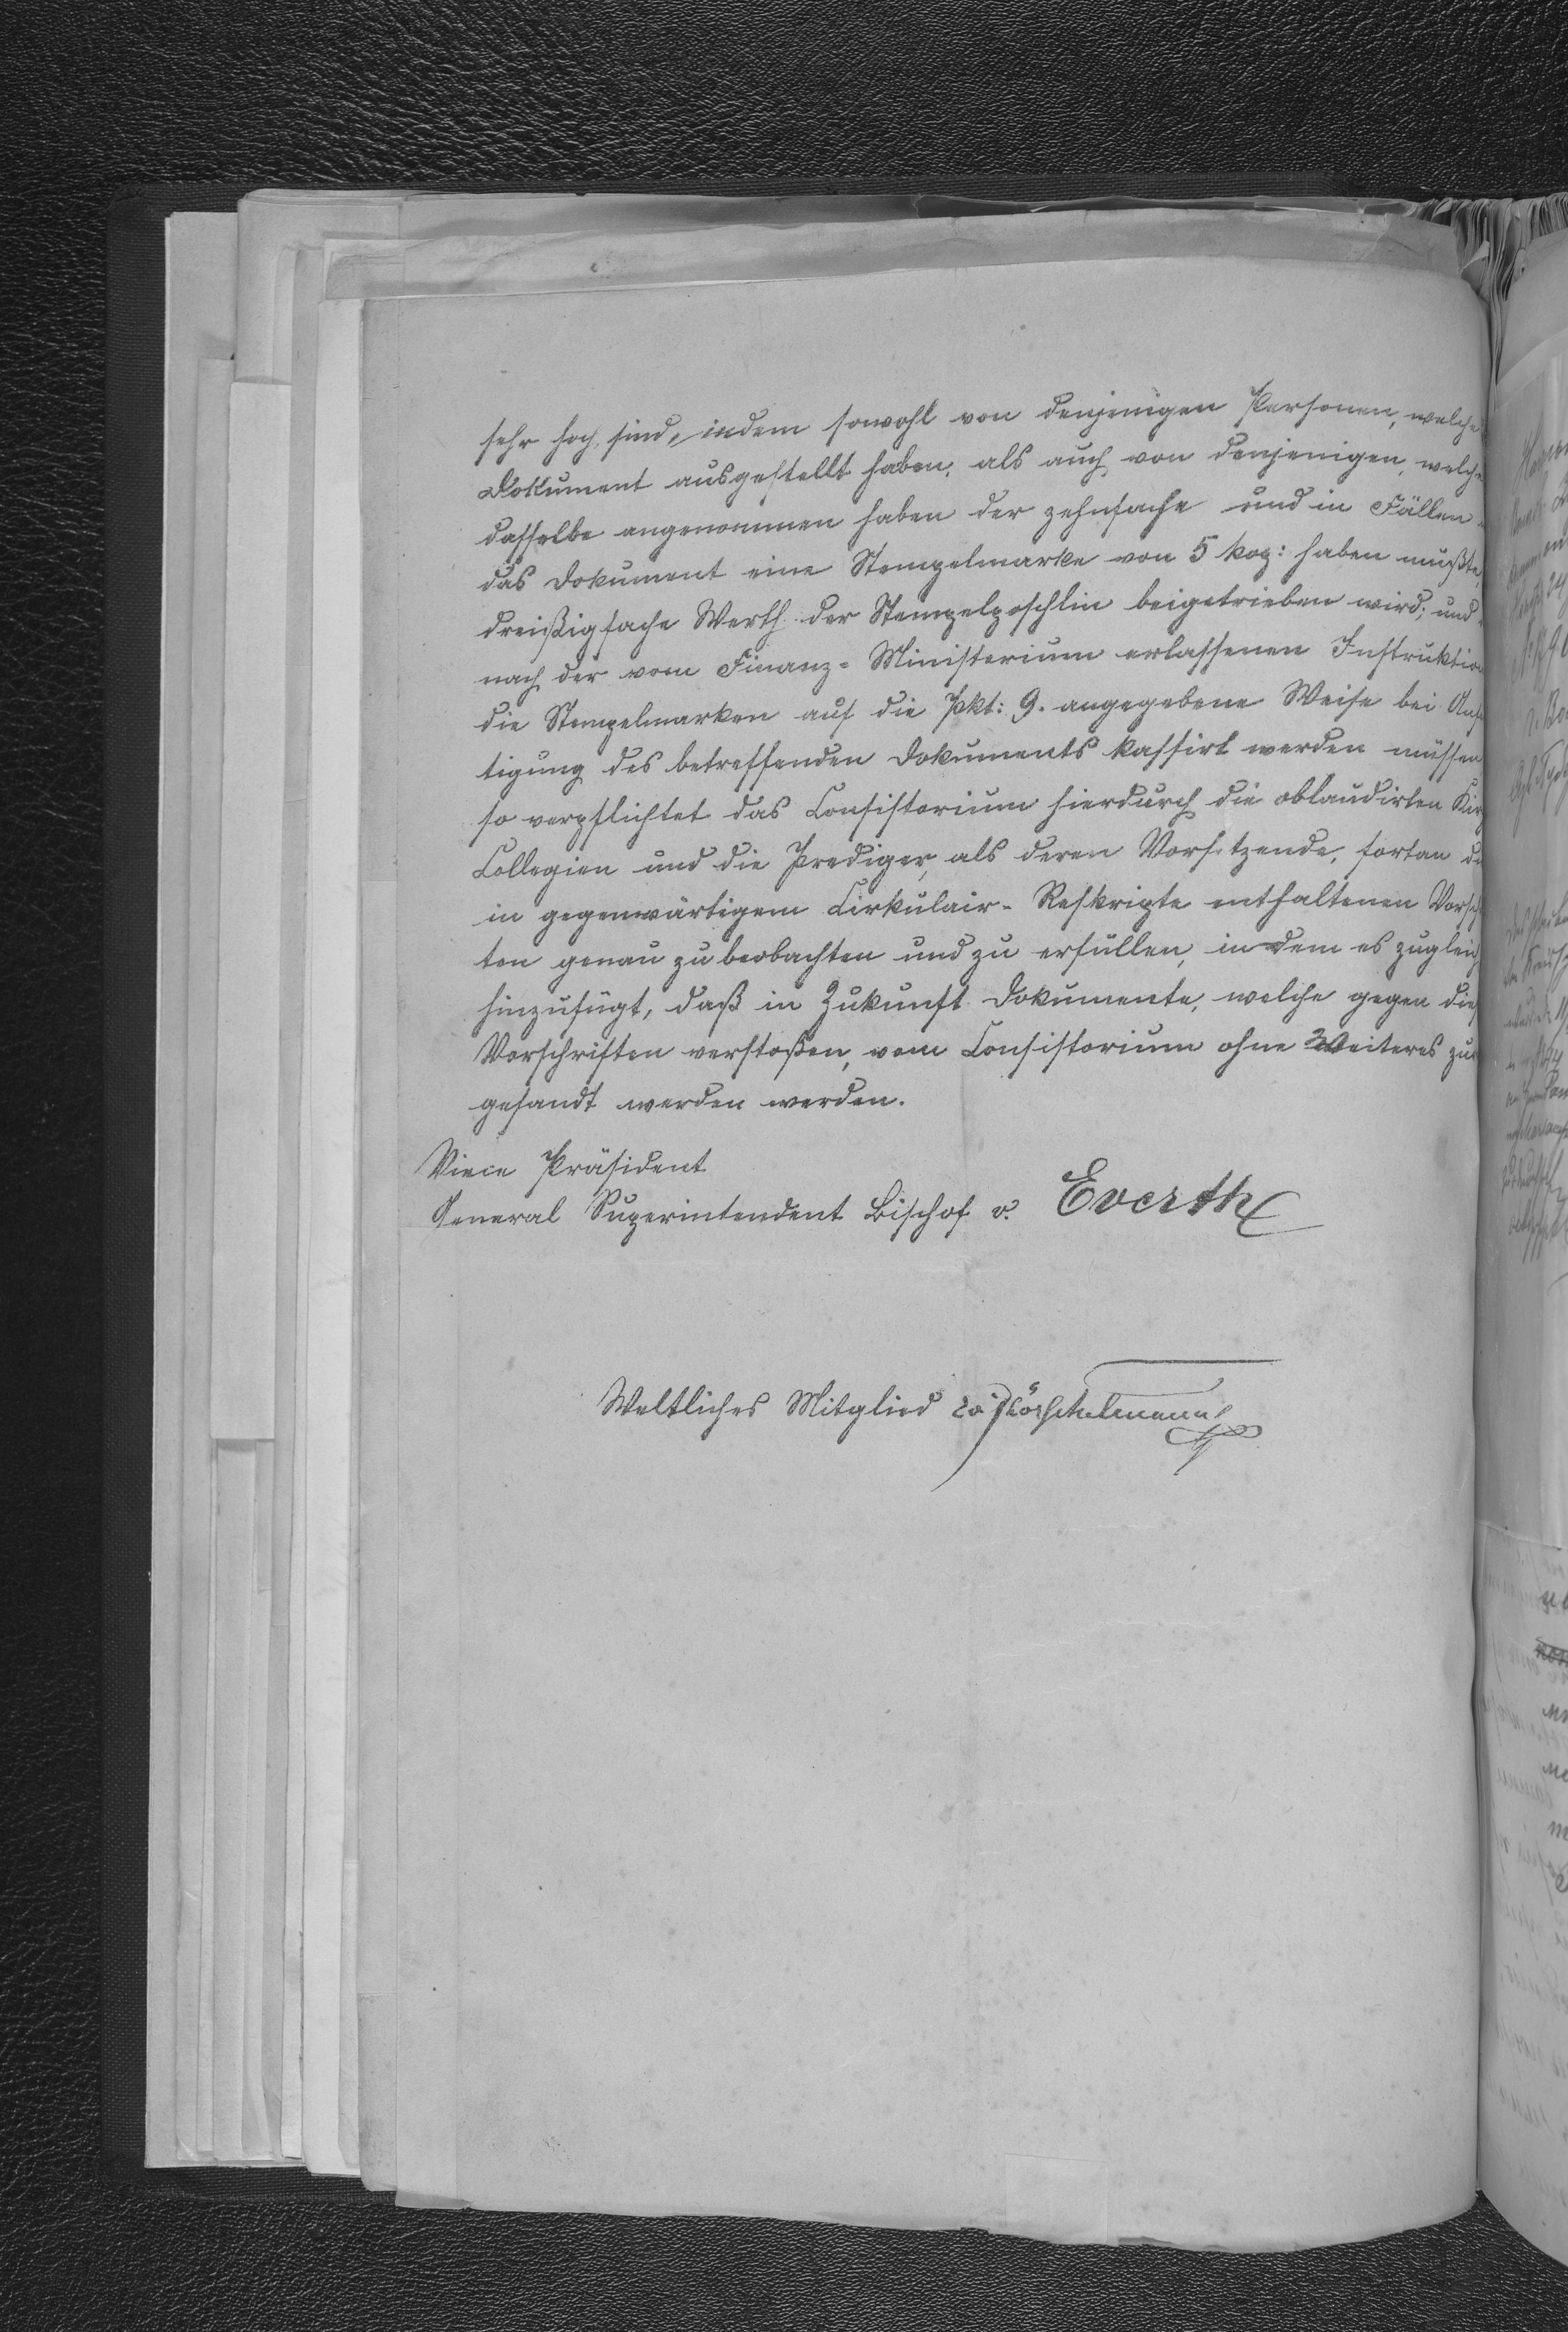 sehr hoch sind, indem sowohl von denjenigen Personen, welche
Dokument ausgestellt haben, als auch von denjenigen, welche
dasselbe angenommen haben der zehnfache und in Fällen
das Dokument eine Stempelmarke von 5 kop: haben mußte
dreißigfache Werth der Stempelposchlin beigetrieben wird; und
nach der vom Finanz-Ministerium erlassenen Instruktion
die Stempelmarken auf die Pkt: 9. angegebene Weise bei Ausf
tigung des betreffenden Dokuments kassirt werden müssen
so verpflichtet das Consistorium hierdurch die oblaudirten Kir
Collegien und die Prediger, als deren Vorsitzende, fortan d
in gegenwärtigem Cirkulair-Reskripte enthaltenen Vorsch
ten genau zu beobachten und zu erfüllen, in dem es zugleich
hinzufügt, daß in Zukunft Dokumente, welche gegen die
Vorschriften verstoßen, vom Consistorium ohne Weiteres zu
gesandt werden werden.
Vice Präsident
General Superintendent Bischof v. Everth
Weltliches Mitglied